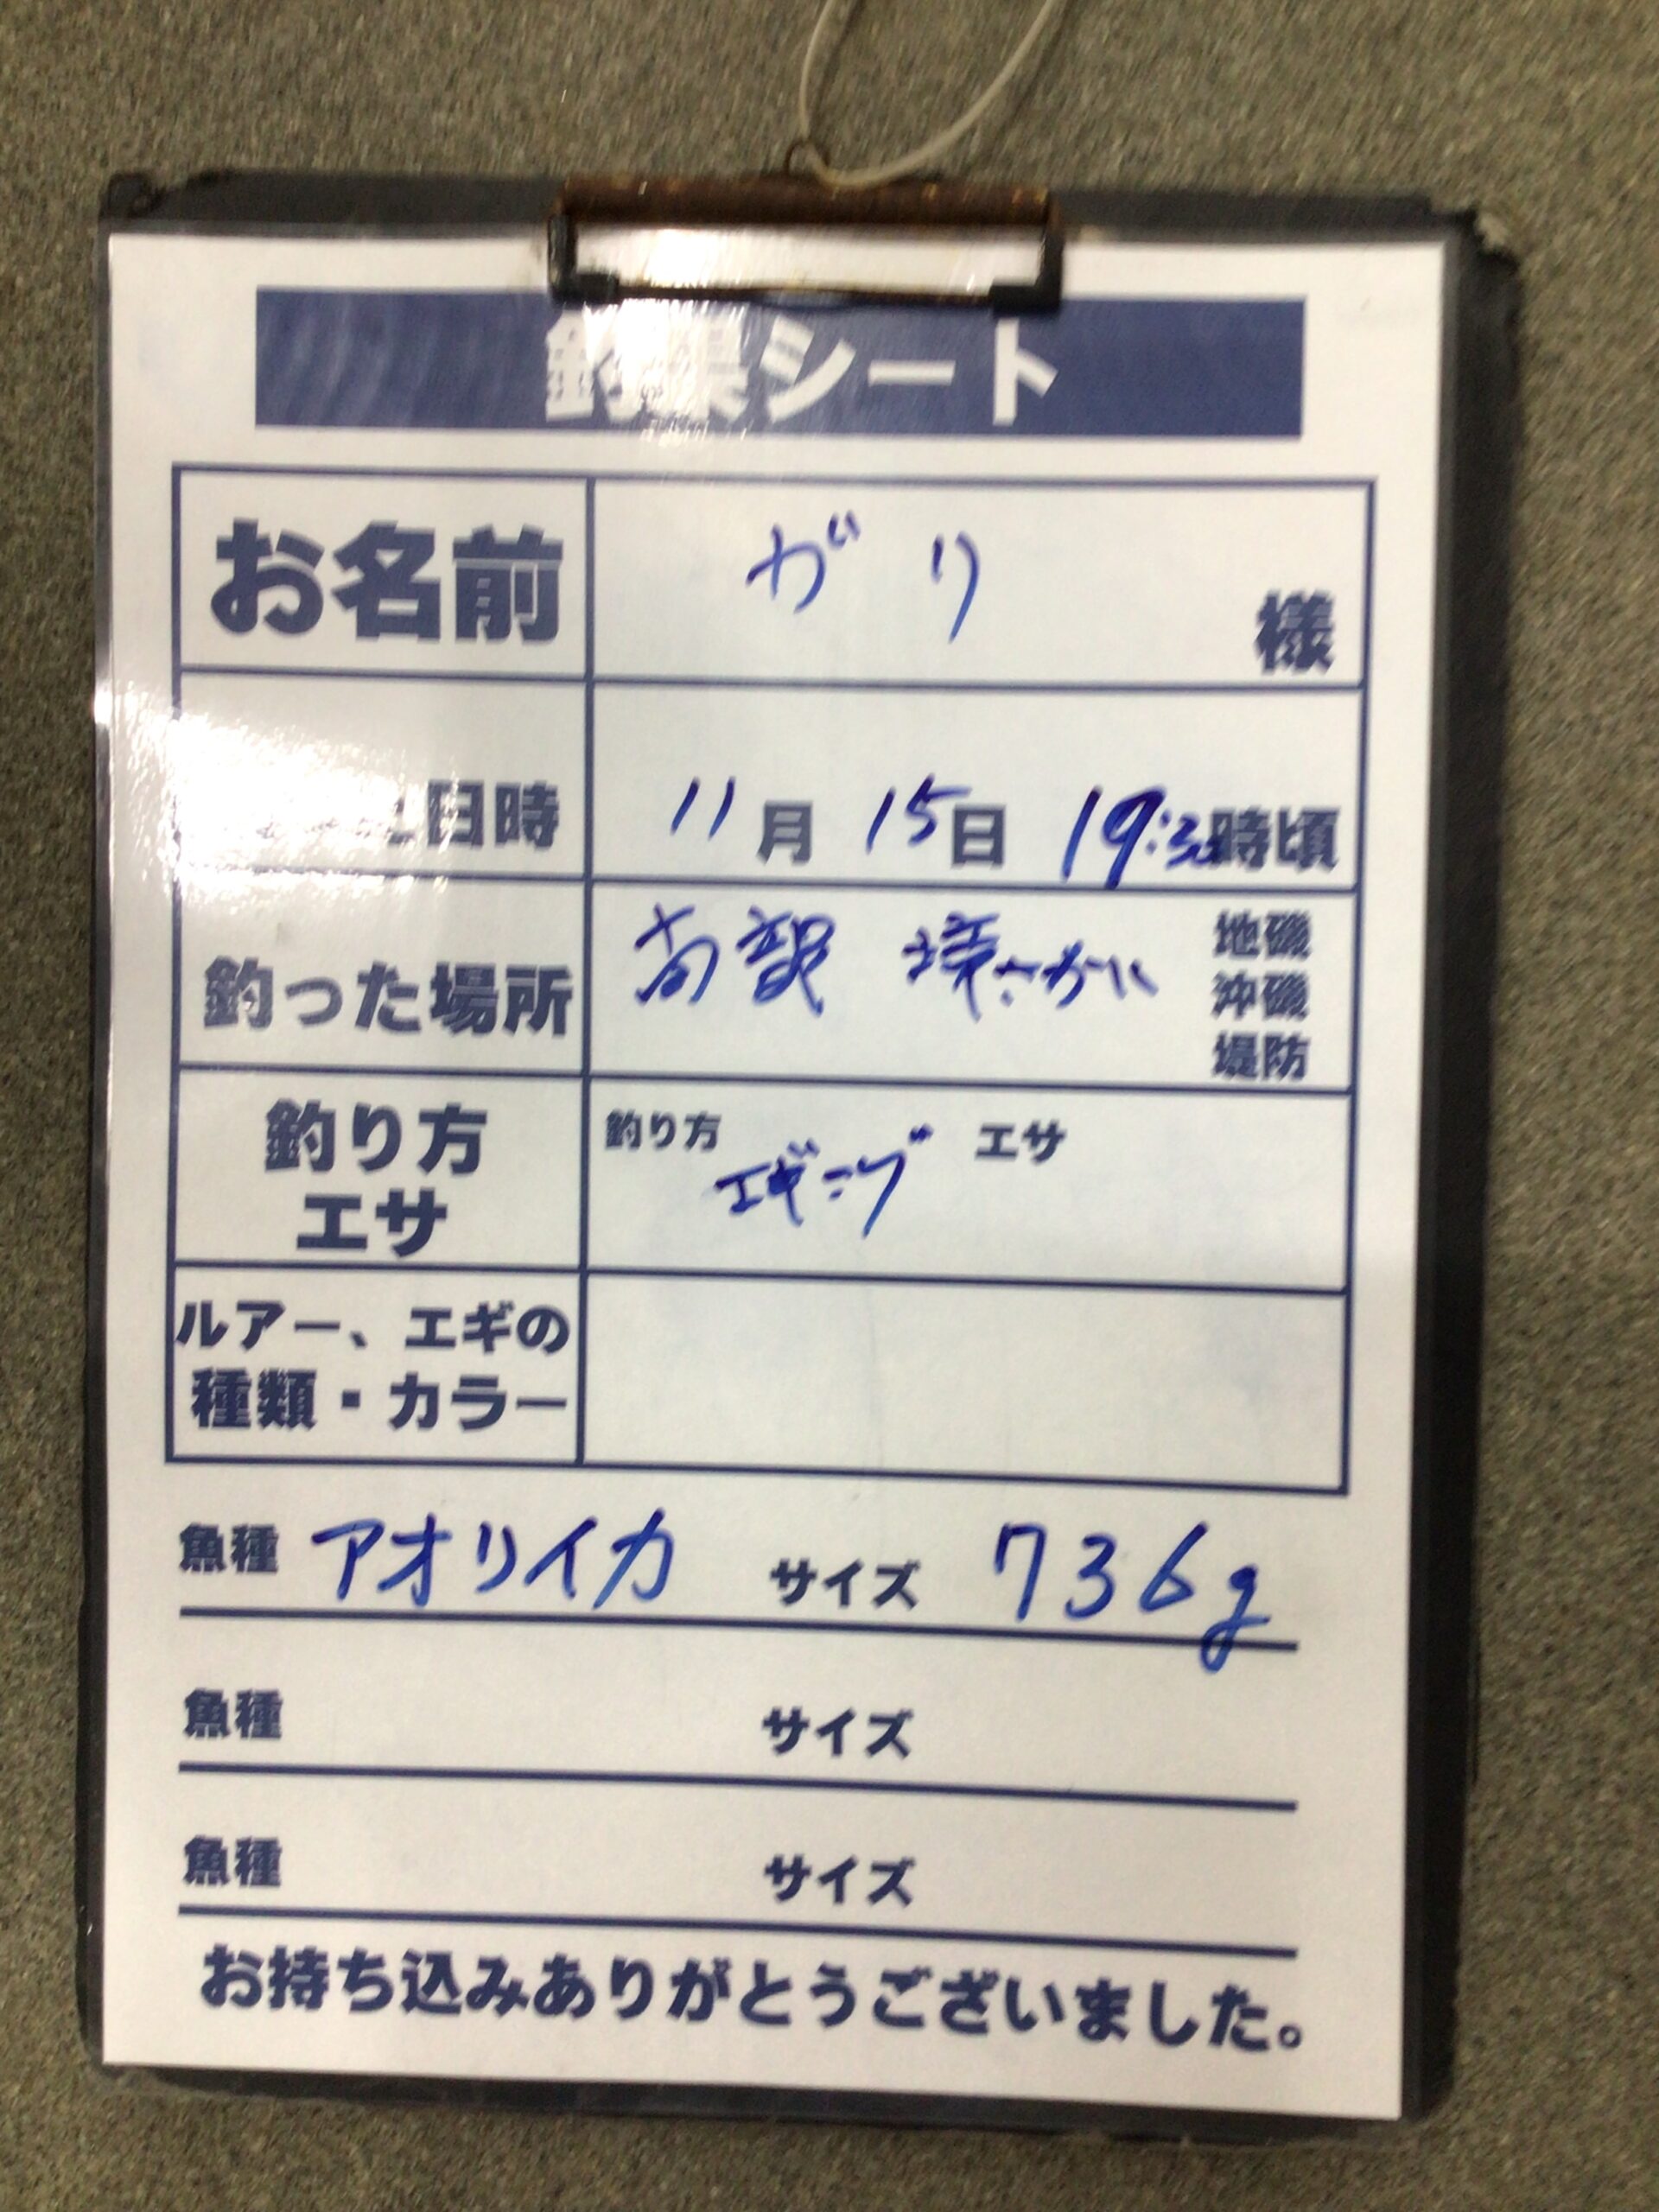 釣果シート
お名前 がり 様
日時 11月15日 19:30時頃
釣った場所 南部 堺さかい 地磯 沖磯 堤防
釣り方 エサ 釣り方 エギング エサ
ルアー、エギの種類・カラー
魚種 アオリイカ サイズ 736g
魚種 サイズ
魚種 サイズ
お持ち込みありがとうございました。